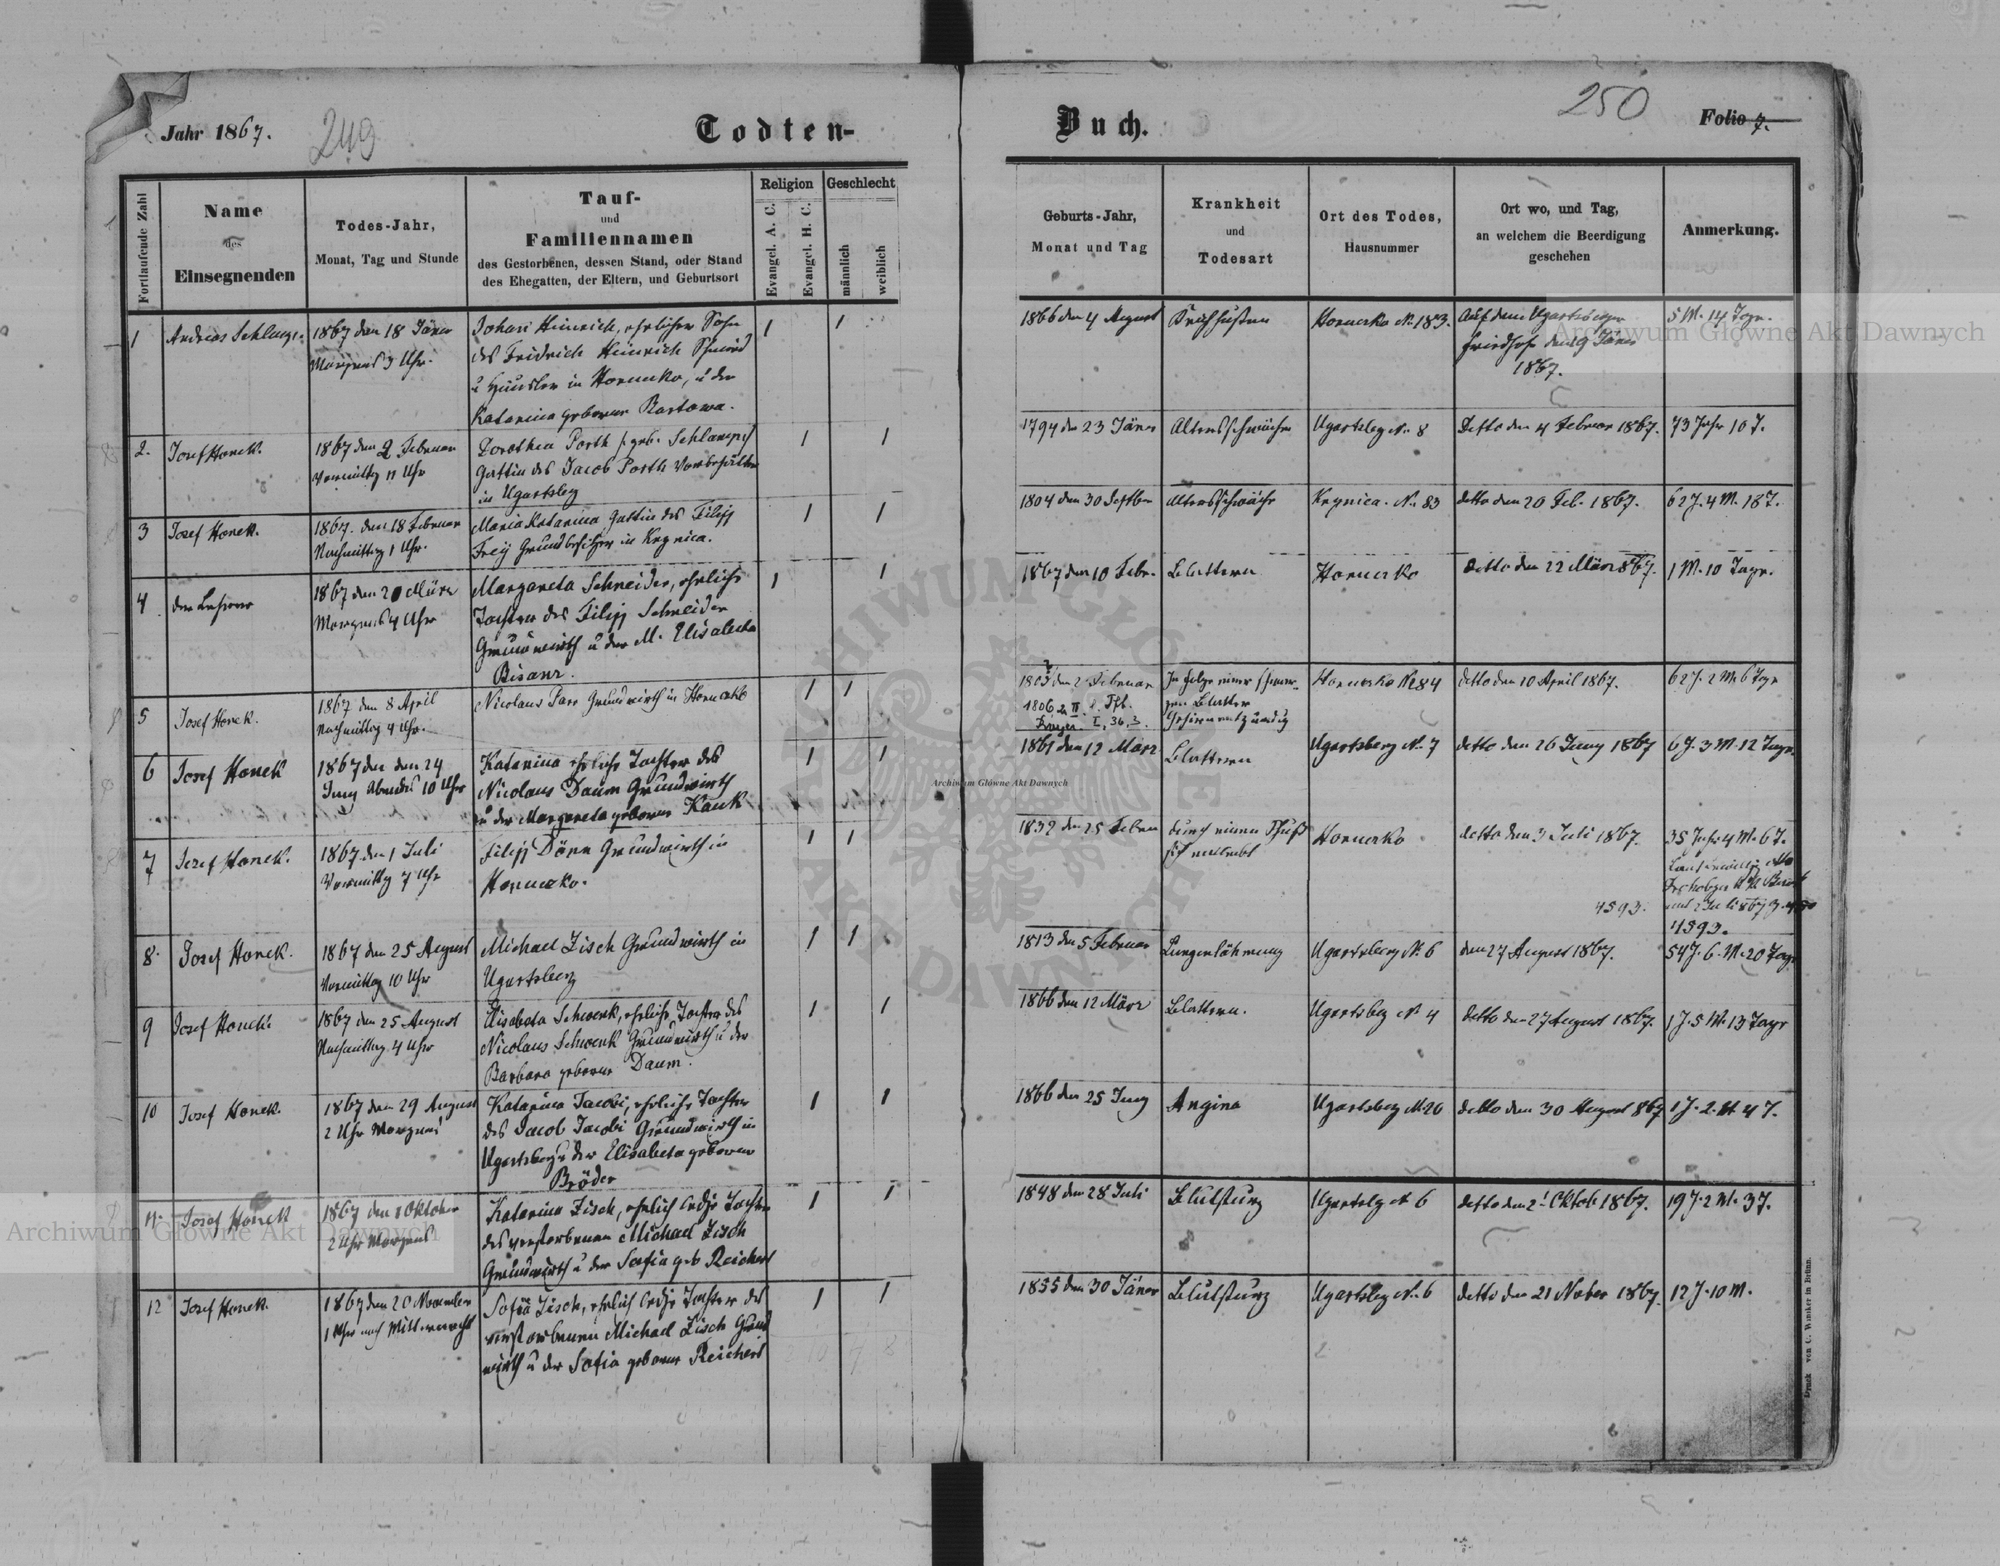 Jahr 1867.
249
Todten-
Buch.
250
Folio 7.
Fortlaufende Zahl
Name
des
Einsegnenden
Todes-Jahr,
Monat, Tag und Stunde
Tauf-
und
Familiennamen
des Gestorbenen, dessen Stand, oder Stand
des Ehegatten, der Eltern, und Geburtsort
Religion
Evangel. A. C.
Evangel. H. C.
Geschlecht
männlich
weiblich
Geburts-Jahr,
Monat und Tag
Krankheit
und
Todesart
Ort des Todes,
Hausnummer
Ort wo, und Tag,
an welchem die Beerdigung
geschehen
Anmerkung.
1
Andreas Schlamp
1867 den 18 Jäner
Morgens 3 Uhr.
Johan Heinrich, ehelicher Sohn
des Fridrich Heinrich Schmid
u Häusler in Hornecko, u der
Katarina geborene Bartowa.
1
1
1866 den 4 August
Hornecko No 183.
Auf dem Ugartsberger
Friedhofe den 19 Jäner
1867.
5 M. 14 Tage.
2.
Josef Honek.
1867 den 2 Februar
Vormittag 11 Uhr
Dorothea Porth geb. Schlamp
Gattin des Jacob Porth
in Ugartsbg
1
1
1794 den 23 Jäner
Altersschwäche
Ugartsbg No 8
Detto den 4 Februar 1867.
73 Jahr 10 T.
3
Josef Honek.
1867. den 18 Februar
Nachmittag 1 Uhr.
Maria Katarina Gattin des Filipp
Frey Grundbesitzer in Krynica.
1
1
1804 den 30 Septber
Altersschwäche
Krynica. No. 83
detto den 20 Feb. 1867.
62 J. 4 M. 18 T.
4
der Lehrer
1867 den 20 März
Morgens 4 Uhr
Margareta Schneider, eheliche
Tochter des Filipp Schneider
Grundwirth u der M. Elisabeta
Bisanz.
1
1
1867 den 10 Febr.
Blattern
Hornecko
detto den 22 März 867.
1 M. 10 Tage.
5
Josef Honek.
1867 den 8 April
Nachmittag 4 Uhr.
Nicolaus Parr Grundwirth in Hornecko
1
1
1805 den 2 Februar
1806
In Folge einer
Blatter
Gehirnentzündung
Hornecko No 84
detto den 10 April 1867.
62 J. 2 M. 6 Tage
6
Josef Honek
1867 den den 24
Juny Abends 10 Uhr
Katarina eheliche Tochter des
Nicolaus Daum Grundwirth
u der Margareta geborene Kauk
1
1
1861 den 12 März
Blattern
Ugartsberg No. 7
detto den 26 Juny 1867
6 J. 3 M. 12 Tage
7
Josef Honek.
1867 den 1 Juli
Vormittg 7 Uhr
Filipp Dörr Grundwirth in
Hornecko.
1
1
1832 den 25 Feber
durch einen Schuß
sich entleibt
Hornecko
detto den 3 Juli 1867.
35 Jahr 4 M. 6 T.
4593.
4593.
8.
Josef Honek.
1867 den 25 August
Vormittag 10 Uhr
Michael Zisch Grundwirth in
Ugartsberg
1
1
1813 den 5 Februar
Lungenlähmung
Ugartsberg No. 6
den 27 August 1867.
54 J. 6. M. 20 Tage
9
Josef Honek.
1867 den 25 August
Nachmittag 4 Uhr
Elisabeta Schwenk, eheliche Tochter des
Nicolaus Schwenk Grundwirth u der
Barbara geborene Daum.
1
1
1866 den 12 März
Blattern.
Ugartsbg No 4
detto den 27 August 1867.
1 J. 5 M. 13 Tage
10
Josef Honek.
1867 den 29 August
2 Uhr Morgens
Katarina Jacobi, eheliche Tochter
des Jacob Jacobi Grundwirth in
Ugartsberg u der Elisabeta geborene
Bröder
1
1
1866 den 25 Juny
Angina
Ugartsberg No 26
detto den 30 August 867
1 J. 2. M. 4 T.
11.
Josef Honek
1867 den 1 Oktober
2 Uhr Morgens
Katarina Zisch, ehelich ledige Tochter
des verstorbenen Michael Zisch
Grundwirth u der Sofia geb Reichert
1
1
1848 den 28 Juli
Blutsturz
Ugartsbg No 6
detto den 2 Oktob 1867.
19 J. 2 M. 3 T.
12
Josef Honek.
1867 den 20 November
1 Uhr nach Mitternacht
Sofia Zisch, ehelich ledige Tochter des
verstorbenen Michael Zisch Grund
wirth u der Sofia geborene Reichert
1
1
1855 den 30 Jäner
Blutsturz
Ugartsbg No. 6
detto den 21 Nober 1867.
12 J. 10 M.
Druck von C. Winiker in Brünn.
Archiwum Główne Akt Dawnych
Archiwum Główne Akt Dawnych
Archiwum Główne Akt Dawnych
ARCHIWUM GŁÓWNE AKT DAWNYCH